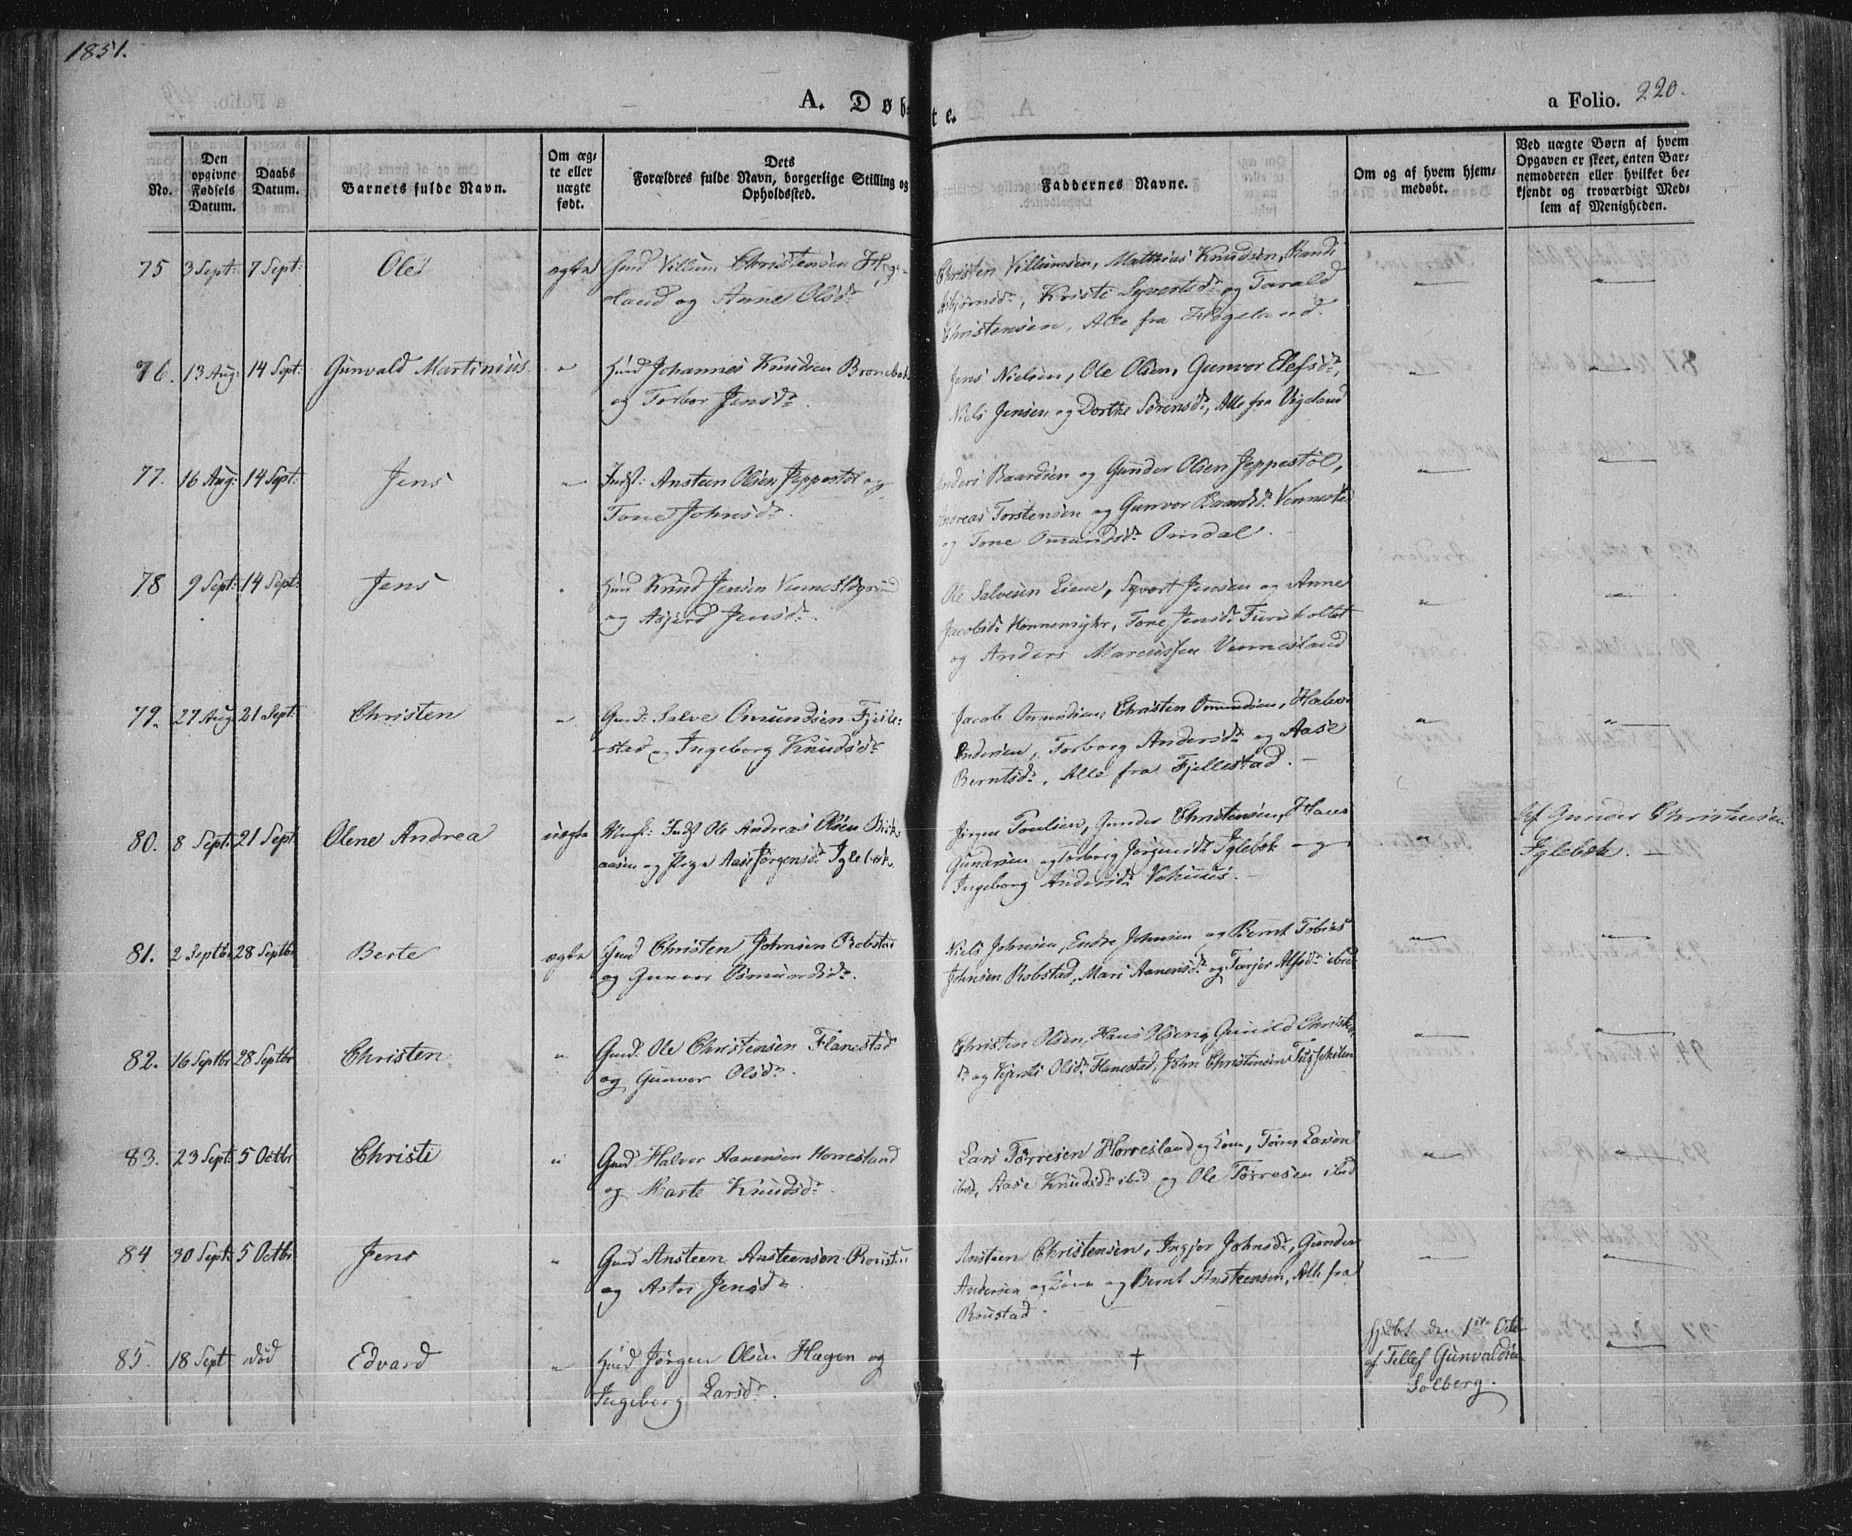 1851.
A. Døbte.
a Folio. 220.
No.
Den opgivne Fødsels Datum.
Daabs Datum.
Barnets fulde Navn.
Om ægte eller uægte født.
Dets Forældres fulde Navn, borgerlige Stilling og Opholdssted.
Faddernes Navne.
Om og af hvem hjemmedøbt.
Ved uægte Børn af hvem Opgaven er skeet, enten Barnemoderen eller hvilket bekjendt og troværdigt Medlem af Menigheden.
75 3 Sept: 7 Sept: Ole ægte Gmd Villum Christensen Hægeland og Anne Olsdr.
Christen Villumsen, Matthias Knudsen, Asbjørnsdr, Kristi Syvertsdr og Tarald
Christensen, Alle fra Hægeland.
76. 13 Aug: 14 Sept: Gunvald Martinius. " Hmd Johannes Knudsen
og Torbor Jensdr.
Jens Nielsen, Ole Olsen, Gunvor Elefsdr,
Niels Jensen og Dorthe Sørensdr, Alle fra Vigeland
77. 16 Aug: 14 Sept: Jens " Indst: Ansteen Olsen Jeppestøl og
Tone Johnsdr.
Anders Baardsen og Gunder Olsen Jeppestøl,
Andreas Torstensen og Gunvor Vennesla
og Tone Omundsdr Omdal.
78 9 Sept: 14 Sept: Jens " Hmd Knud Jensen
og Asjerd Jensdr.
Ole Salvesen Eiene, Syvert Jensen og Anne
Jacobsdr Honnemyhr, Tone Jensdr
og Anders Marcussen Vennesland
79. 27 Aug 21 Sept: Christen " Gmd: Salve Omundsen Fjellestad og Ingeborg Knudsdr
Jacob Omundsen, Christen Omundsen, Halvor
Andersen, Torborg Andersdr og Aase
Berntsdr, Alle fra Fjellestad.
80. 8 Sept: 21 Sept: Olene Andrea uægte Ungk: Indst Ole Andreas Olsen
og Pige Aase Jørgensdr Iglebæk.
Jørgen Poulsen, Gunder Christensen, Hans
Gundersen og Torborg Jørgensdr Iglebæk og
Ingeborg Andersdr Vehuus.
Af Gunder Christensen
Iglebæk.
81. 2 Septbr 28 Septbr Berte ægte Gmd Christen Johnsen Robstad
og Gunvor Osmundsdr.
Niels Johnsen, Endre Johnsen og Bernt Tobias
Johnsen Robstad, Mari Aanensdr og Tarjer Alfsdr ibid
82. 16 Septbr 28 Septbr Christen " Gmd. Ole Christensen Flanestad
og Gunvor Olsdr.
Christen Olsen, Hans Olsen, Gunild
dr og Kjersti Olsdr Flanestad, John Christensen
83. 23 Sept: 5 Octbr Christi " Gmd Halvor Aanensen Horresland
og Marte Knudsdr.
Lars Tørresen Horresland og Kone, Tørres Larsen
ibid, Aase Knudsdr ibid og Ole Tørresen ibid
84 30 Sept: 5 Octbr Jens " Gmd Ansteen Ansteensen Roustad
og Astri Jensdr.
Ansteen Christensen, Ingjer Johnsdr, Gunder
Andersen og Kone og Bernt Ansteensen, Alle fra
Roustad.
85. 18 Sept død Edvard " Hmd Jørgen Olsen Hagen og
Ingeborg Larsdr.
+
hjdbt den 1ste Octbr
af Tellef Gunvaldsen
Solberg.